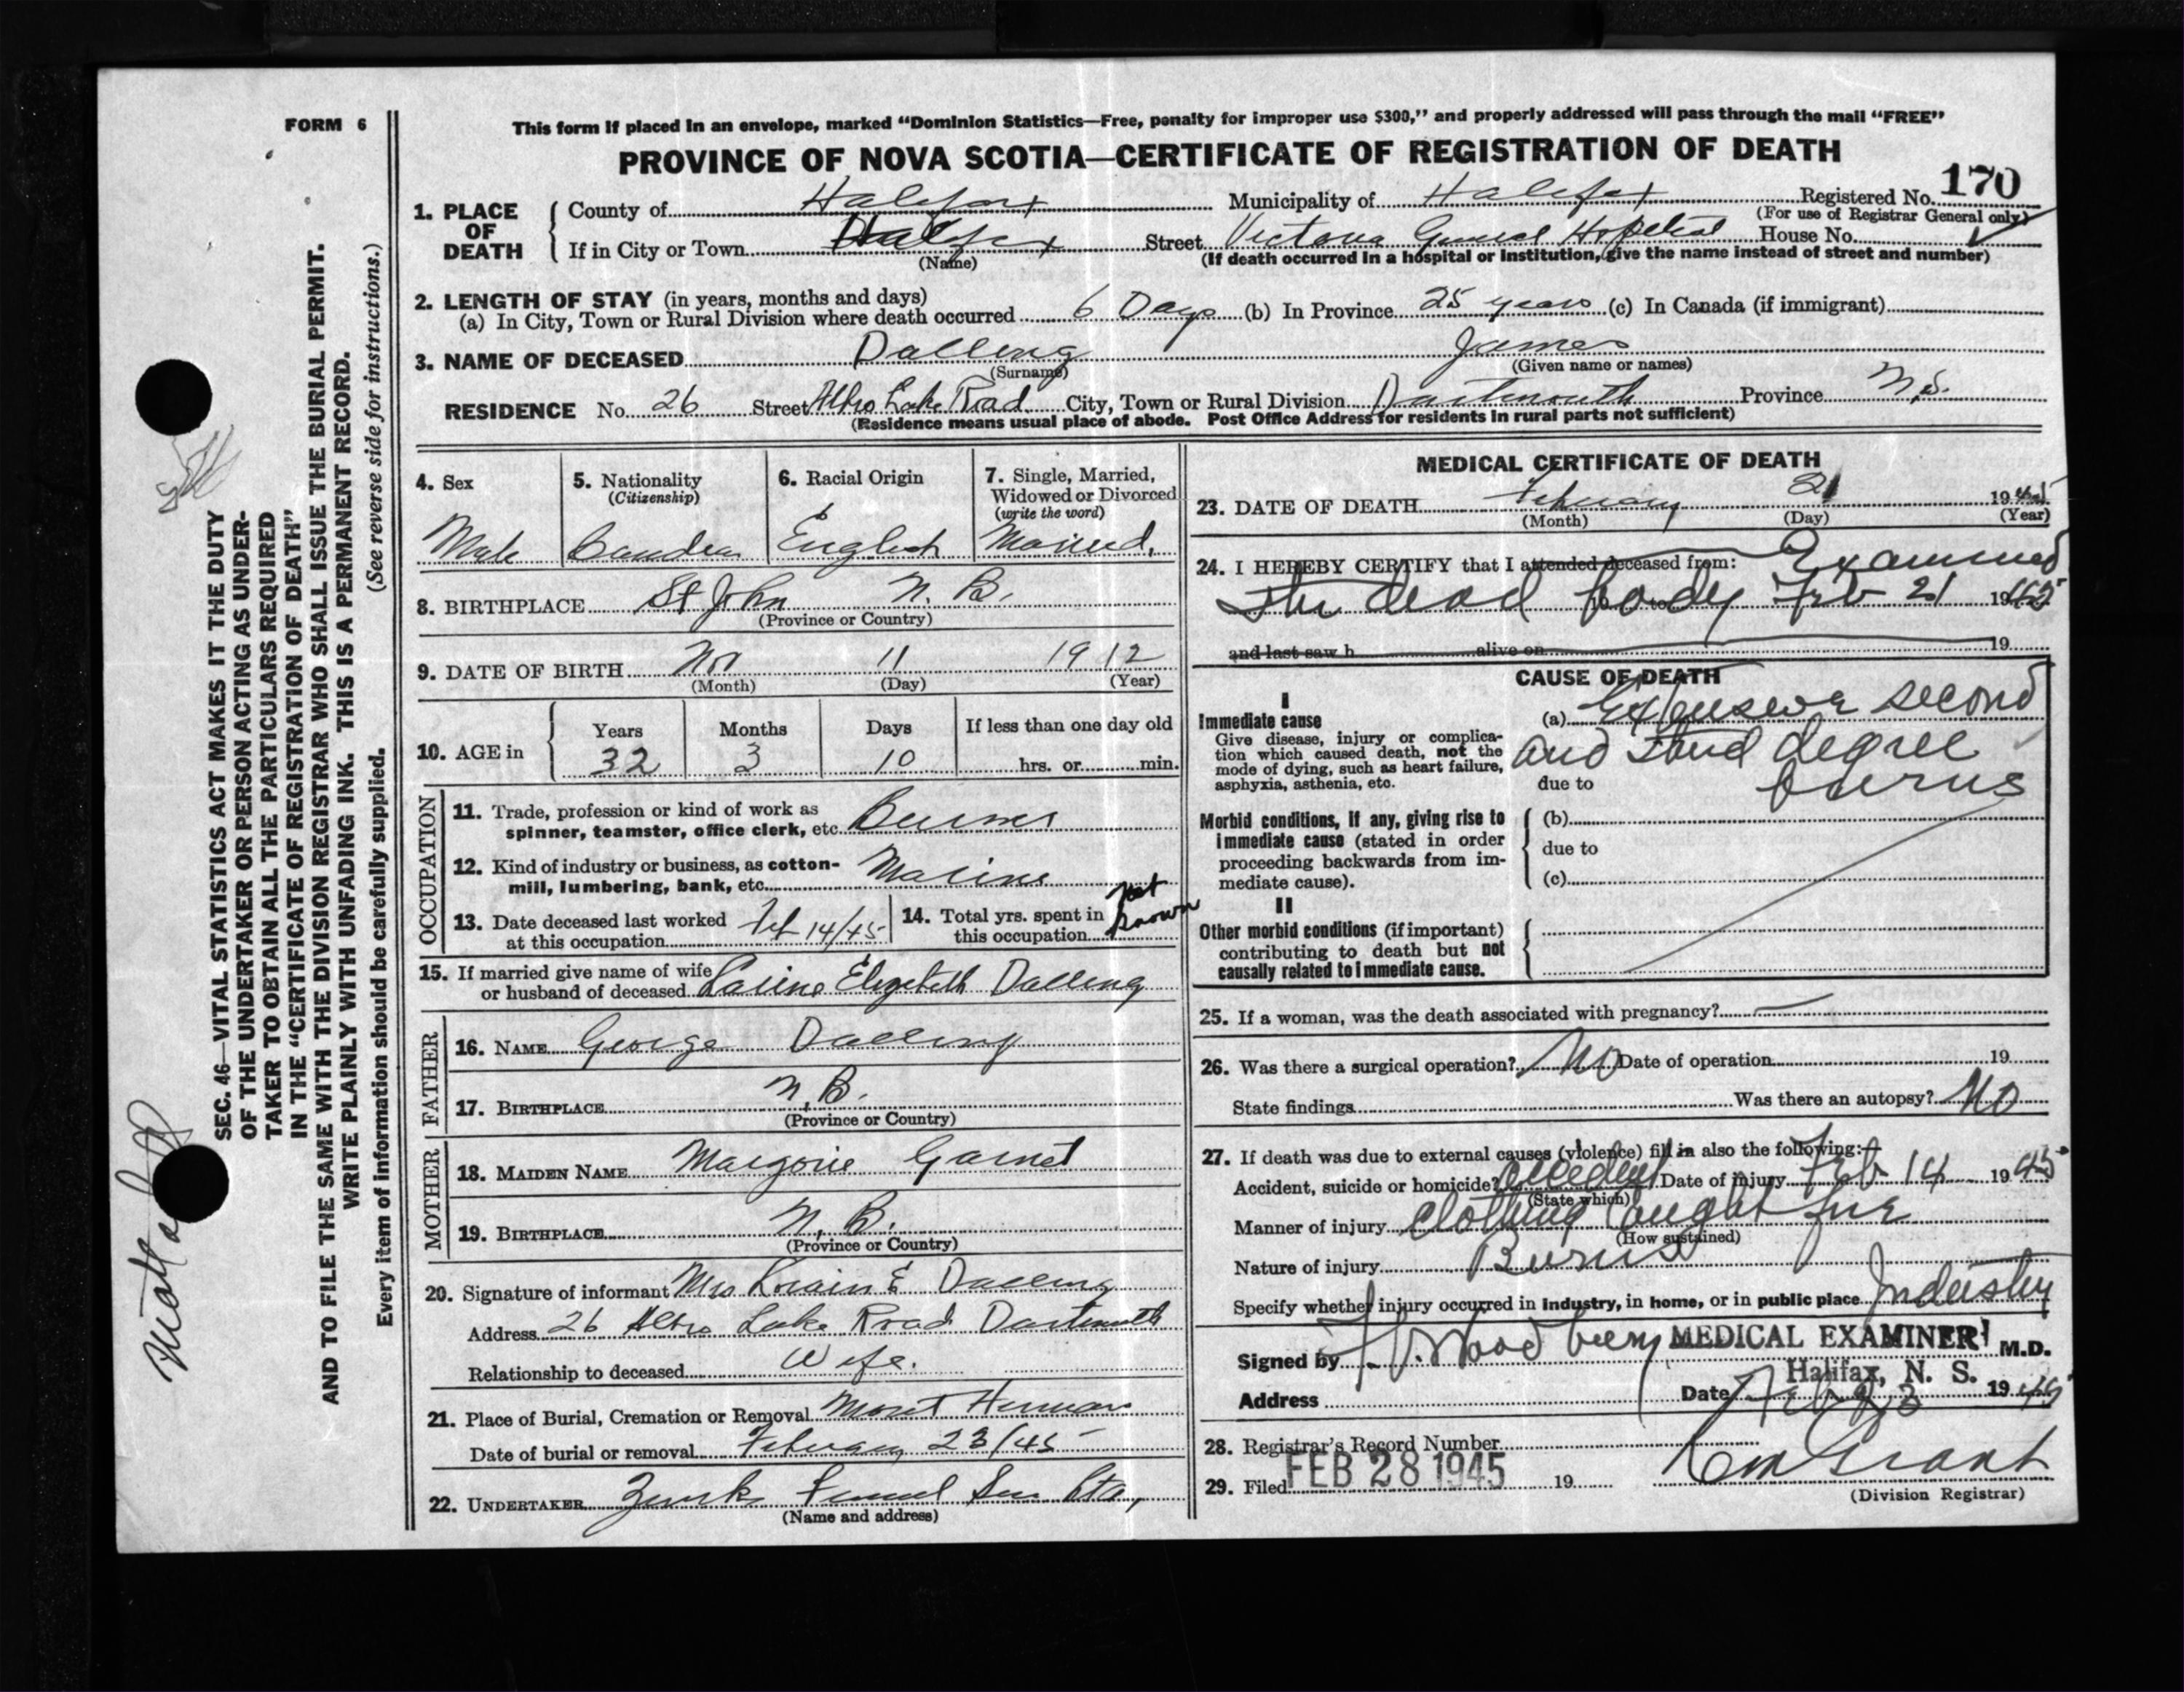 FORM 6
This form if placed in an envelope, marked “Dominion Statistics—Free, penalty for improper use $300,” and properly addressed will pass through the mail “FREE”
PROVINCE OF NOVA SCOTIA—CERTIFICATE OF REGISTRATION OF DEATH
1. PLACE OF DEATH County of Halifax Municipality of Halifax Registered No. 170
(For use of Registrar General only)
If in City or Town Halifax Street Victoria General Hospital House No.
(Name) (If death occurred in a hospital or institution, give the name instead of street and number)
2. LENGTH OF STAY (in years, months and days)
(a) In City, Town or Rural Division where death occurred 6 Days (b) In Province 25 years (c) In Canada (if immigrant)
3. NAME OF DECEASED Dalling James
(Surname) (Given name or names)
RESIDENCE No. 26 Street Albro Lake Road City, Town or Rural Division Dartmouth Province N.S.
(Residence means usual place of abode. Post Office Address for residents in rural parts not sufficient)
4. Sex Male
5. Nationality (Citizenship)
6. Racial Origin English
7. Single, Married, Widowed or Divorced (write the word) Married.
8. BIRTHPLACE St John N.B.
(Province or Country)
9. DATE OF BIRTH Nov 11 1912
(Month) (Day) (Year)
10. AGE in Years 32 Months 3 Days 10 If less than one day old hrs. or min.
OCCUPATION
11. Trade, profession or kind of work as
spinner, teamster, office clerk, etc. Burner
12. Kind of industry or business, as cotton-
mill, lumbering, bank, etc. Marine
13. Date deceased last worked
at this occupation Feb 14/45
14. Total yrs. spent in
this occupation not known
15. If married give name of wife
or husband of deceased Elizabeth Dalling
FATHER
16. NAME George Dalling
17. BIRTHPLACE N.B.
(Province or Country)
MOTHER
18. MAIDEN NAME Margorie Garnet
19. BIRTHPLACE N.B.
(Province or Country)
20. Signature of informant Mrs E Dalling
Address 26 Albro Lake Road Dartmouth
Relationship to deceased Wife.
21. Place of Burial, Cremation or Removal Mount Herman
Date of burial or removal February 23/45
22. UNDERTAKER Zinck Funeral
(Name and address)
MEDICAL CERTIFICATE OF DEATH
23. DATE OF DEATH February 21 1945
(Month) (Day) (Year)
24. I HEREBY CERTIFY that I attended deceased from: Examined
the dead body Feb 21 1945
and last saw h alive on 19
CAUSE OF DEATH
I
Immediate cause
Give disease, injury or complica-
tion which caused death, not the
mode of dying, such as heart failure,
asphyxia, asthenia, etc.
(a) Extensive second
and third degree
due to burns
Morbid conditions, if any, giving rise to
immediate cause (stated in order
proceeding backwards from im-
mediate cause).
(b)
due to
(c)
II
Other morbid conditions (if important)
contributing to death but not
causally related to immediate cause.
25. If a woman, was the death associated with pregnancy?
26. Was there a surgical operation? No Date of operation 19
State findings Was there an autopsy? No
27. If death was due to external causes (violence) fill in also the following:
Accident, suicide or homicide? accident Date of injury Feb 14 1945
(State which)
Manner of injury clothing caught fire
(How sustained)
Nature of injury Burns
Specify whether injury occurred in industry, in home, or in public place Industry
Signed by MEDICAL EXAMINER M.D.
Halifax, N. S.
Address Date Feb 23 1945
28. Registrar's Record Number
29. Filed FEB 28 1945 19
(Division Registrar)
SEC. 46—VITAL STATISTICS ACT MAKES IT THE DUTY
OF THE UNDERTAKER OR PERSON ACTING AS UNDER-
TAKER TO OBTAIN ALL THE PARTICULARS REQUIRED
IN THE “CERTIFICATE OF REGISTRATION OF DEATH”
AND TO FILE THE SAME WITH THE DIVISION REGISTRAR WHO SHALL ISSUE THE BURIAL PERMIT.
WRITE PLAINLY WITH UNFADING INK. THIS IS A PERMANENT RECORD.
Every item of information should be carefully supplied. (See reverse side for instructions.)